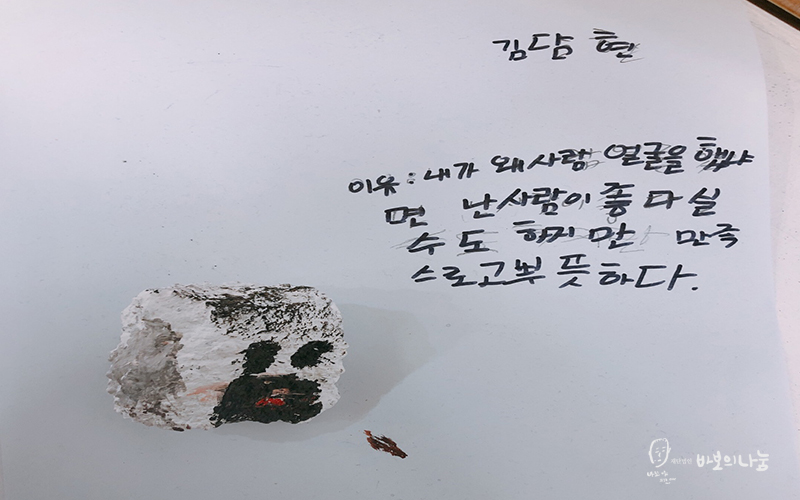 김담현
이유 : 내가 왜 사람 얼굴을 했냐
면 난 사람이 좋다 실
수도 하지만 만족
스로고 뿌듯하다.
재단법인 바보의나눔